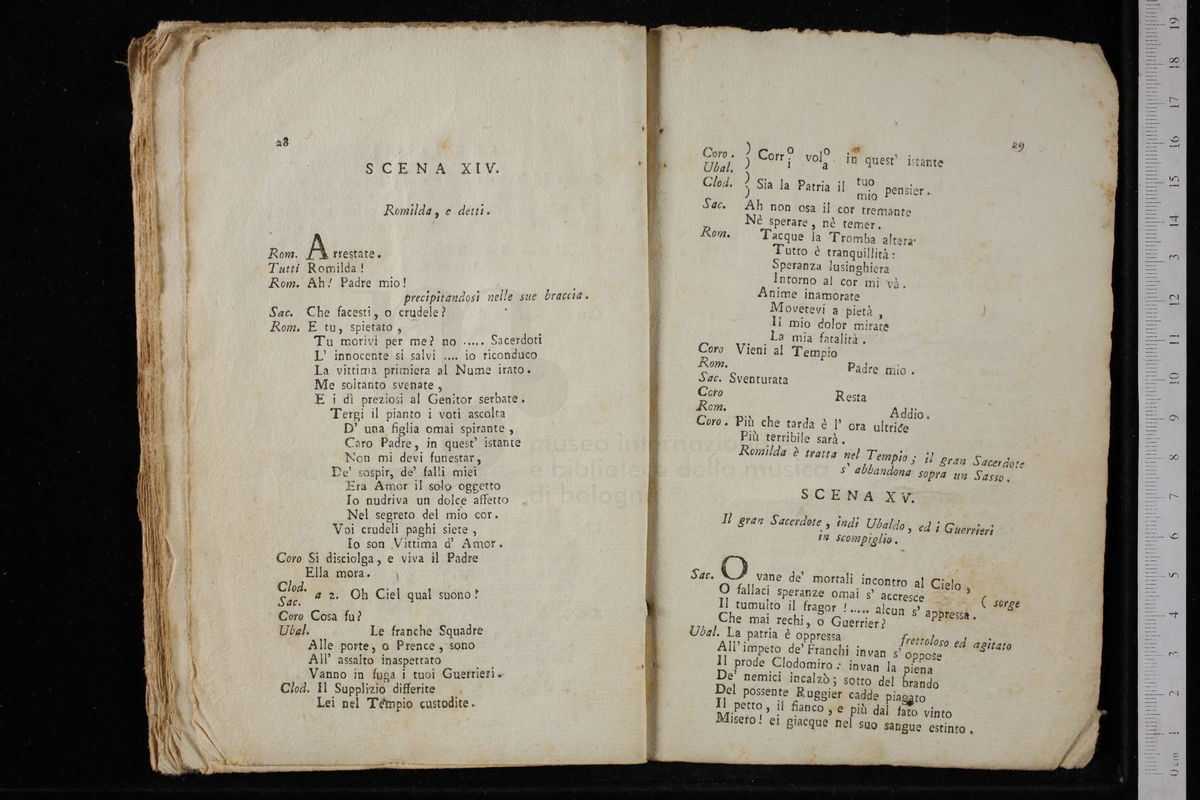 28
SCENA XIV.
Romilda, e detti.
Rom. Arrestate.
Tutti Romilda!
Rom. Ah! Padre mio!
precipitandosi nelle sue braccia.
Sac. Che facesti, o crudele?
Rom. E tu, spietato,
Tu morivi per me? no ..... Sacerdoti
L' innocente si salvi .... io riconduco
La vittima primiera al Nume irato.
Me soltanto svenate,
E i dì preziosi al Genitor serbate.
Tergi il pianto i voti ascolta
D' una figlia omai spirante,
Caro Padre, in quest' istante
Non mi devi funestar,
De' sospir, de' falli miei
Era Amor il solo oggetto
Io nudriva un dolce affetto
Nel segreto del mio cor.
Voi crudeli paghi siete,
Io son Vittima d' Amor.
Coro Si disciolga, e viva il Padre
Ella mora.
Clod.
Sac. a 2. Oh Ciel qual suono?
Coro Cosa fu?
Ubal. Le franche Squadre
Alle porte, o Prence, sono
All' assalto inaspettato
Vanno in fuga i tuoi Guerrieri.
Clod. Il Supplizio differite
Lei nel Tempio custodite.
29
Coro. ) Corr o i vol o a in quest' istante
Ubal. )
Clod. ) Sia la Patria il tuo mio pensier.
Sac. Ah non osa il cor tremante
Nè sperare, nè temer.
Rom. Tacque la Tromba altera
Tutto è tranquillità:
Speranza lusinghiera
Intorno al cor mi và.
Anime inamorate
Movetevi a pietà,
Il mio dolor mirate
La mia fatalità.
Coro Vieni al Tempio
Rom. Padre mio.
Sac. Sventurata
Coro Resta
Rom. Addio.
Coro. Più che tarda è l' ora ultrice
Più terribile sarà.
Romilda è tratta nel Tempio; il gran Sacerdote
s' abbandona sopra un Sasso.
SCENA XV.
Il gran Sacerdote, indi Ubaldo, ed i Guerrieri
in scompiglio.
Sac. O vane de' mortali incontro al Cielo,
O fallaci speranze omai s' accresce
Il tumulto il fragor!..... alcun s' appressa. ( sorge
Che mai rechi, o Guerrier?
Ubal. La patria è oppressa frettoloso ed agitato
All' impeto de' Franchi invan s' oppose
Il prode Clodomiro: invan la piena
De' nemici incalzò; sotto del brando
Del possente Ruggier cadde piagato
Il petto, il fianco, e più dal fato vinto
Misero! ei giacque nel suo sangue estinto.
museo internazio
e biblioteca della musica
di bologna
0 cm 1 2 3 4 5 6 7 8 9 10 11 12 13 14 15 16 17 18 19